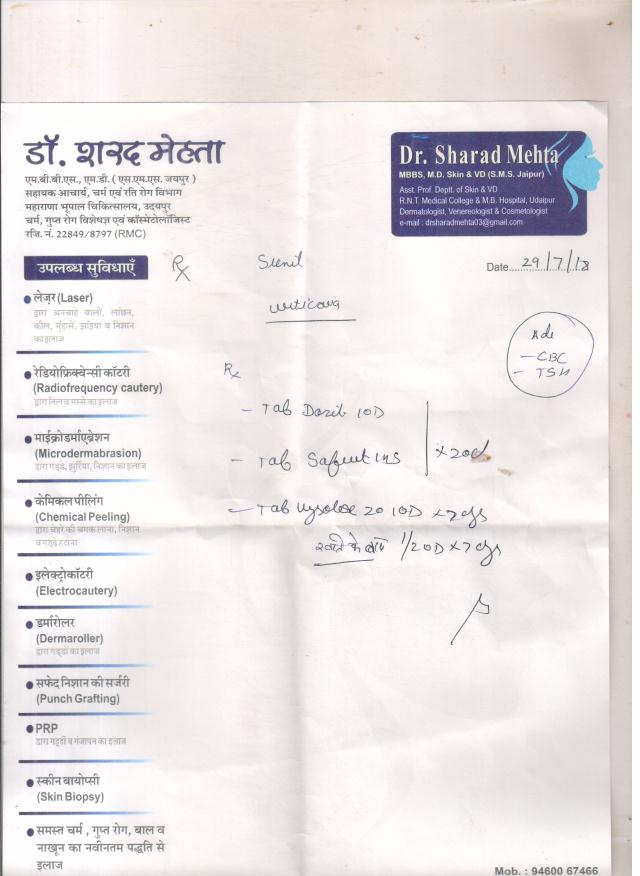 डॉ. शरद मेहता
एम.बी.बी.एस., एम.डी. ( एस.एम.एस. जयपुर )
सहायक आचार्य, चर्म एवं रति रोग विभाग
महाराणा भूपाल चिकित्सालय, उदयपुर
चर्म, गुप्त रोग विशेषज्ञ एवं कॉस्मेटोलॉजिस्ट
रजि. नं. 22849/8797 (RMC)
Dr. Sharad Mehta
MBBS, M.D. Skin & VD (S.M.S. Jaipur)
Asst. Prof. Deptt. of Skin & VD
R.N.T. Medical College & M.B. Hospital, Udaipur
Dermatologist, Venereologist & Cosmetologist
e-mail : drsharadmehta03@gmail.com
Date 29/7/18
Rx Sunil
urticaria
Adv
- CBC
- TSH
Rx
- Tab 10D
- Tab 1HS
x 20d
- Tab Wysolone 20 10D x 7 dys
1/2 0D x 7 dys
उपलब्ध सुविधाएँ
लेज़र (Laser)
द्वारा अनचाहे बालों, लांछन,
कील, मुंहासे, झाँइयां व निशान
का इलाज
रेडियोफ्रिक्वेन्सी कॉटरी
(Radiofrequency cautery)
द्वारा तिल व मस्से का इलाज
माईक्रोडर्माएब्रेशन
(Microdermabrasion)
द्वारा गड्डे, झुर्रिया, निशान का इलाज
केमिकल पीलिंग
(Chemical Peeling)
द्वारा चेहरे की चमक लाना, निशान
व गड्ढे हटाना
इलेक्ट्रोकॉटरी
(Electrocautery)
डर्मारोलर
(Dermaroller)
द्वारा गड्डों का इलाज
सफेद निशान की सर्जरी
(Punch Grafting)
PRP
द्वारा गड्डों व गंजापन का इलाज
स्कीन बायोप्सी
(Skin Biopsy)
समस्त चर्म , गुप्त रोग, बाल व
नाखून का नवीनतम पद्धति से
इलाज
Mob. : 94600 67466